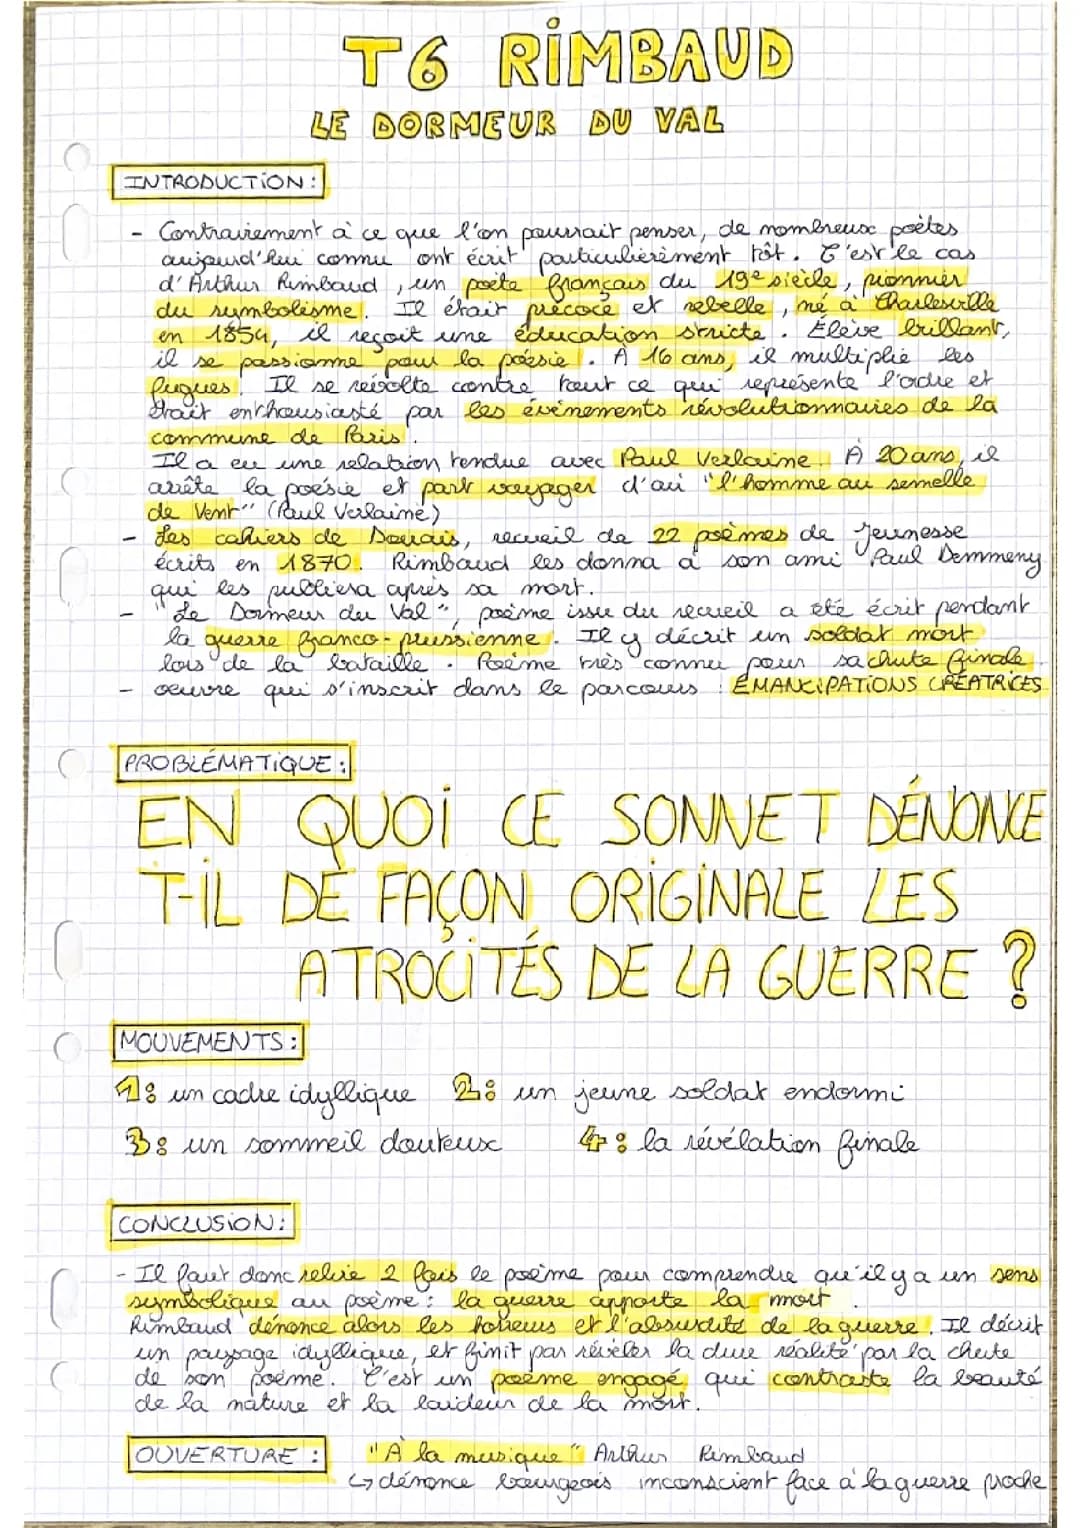 T6 RIMBAUD
LE DORMEUR DU VAL
INTRODUCTION :
- Contrairement à ce que l'on pourrait penser, de nombreux poètes
aujourd'hui connu ont écrit particulièrement tôt. C'est le cas
d'Arthur Rimbaud, un poète français du 19e siècle, pionnier
du symbolisme. Il était précoce et rebelle, né à Charleville
en 1854, il reçoit une éducation stricte. Élève brillant,
il se passionne pour la poésie. À 16 ans, il multiplie les
fugues. Il se révolte contre tout ce qui représente l'ordre et
était enthousiasté par les événements révolutionnaires de la
commune de Paris.
Il a eu une relation tendue avec Paul Verlaine. À 20 ans, il
arrête la poésie et part voyager d'où "l'homme au semelle
de Vent" (Paul Verlaine)
- Les cahiers de Douais, recueil de 22 poèmes de Jeunesse
écrits en 1870. Rimbaud les donna à son ami Paul Demmeny
qui les publiera après sa mort.
- "Le Dormeur du Val", poème issu du recueil a été écrit pendant
la guerre franco-prussienne. Il y décrit un soldat mort
lors de la bataille. Poème très connu pour sa chute finale.
- oeuvre qui s'inscrit dans le parcours : ÉMANCIPATIONS CRÉATRICES
PROBLÉMATIQUE :
EN QUOI CE SONNET DÉNONCE
T-IL DE FAÇON ORIGINALE LES
ATROCITÉS DE LA GUERRE ?
MOUVEMENTS :
1 : un cadre idyllique 2 : un jeune soldat endormi
3 : un sommeil douteux 4 : la révélation finale
CONCLUSION :
- Il faut donc relire 2 fois le poème pour comprendre qu'il y a un sens
symbolique au poème : la guerre apporte la mort.
Rimbaud dénonce alors les horreurs et l'absurdité de la guerre. Il décrit
un paysage idyllique, et finit par révéler la dure réalité par la chute
de son poème. C'est un poème engagé, qui contraste la beauté
de la nature et la laideur de la mort.
OUVERTURE : "À la musique" Arthur Rimbaud
↳ dénonce bourgeois inconscient face à la guerre proche